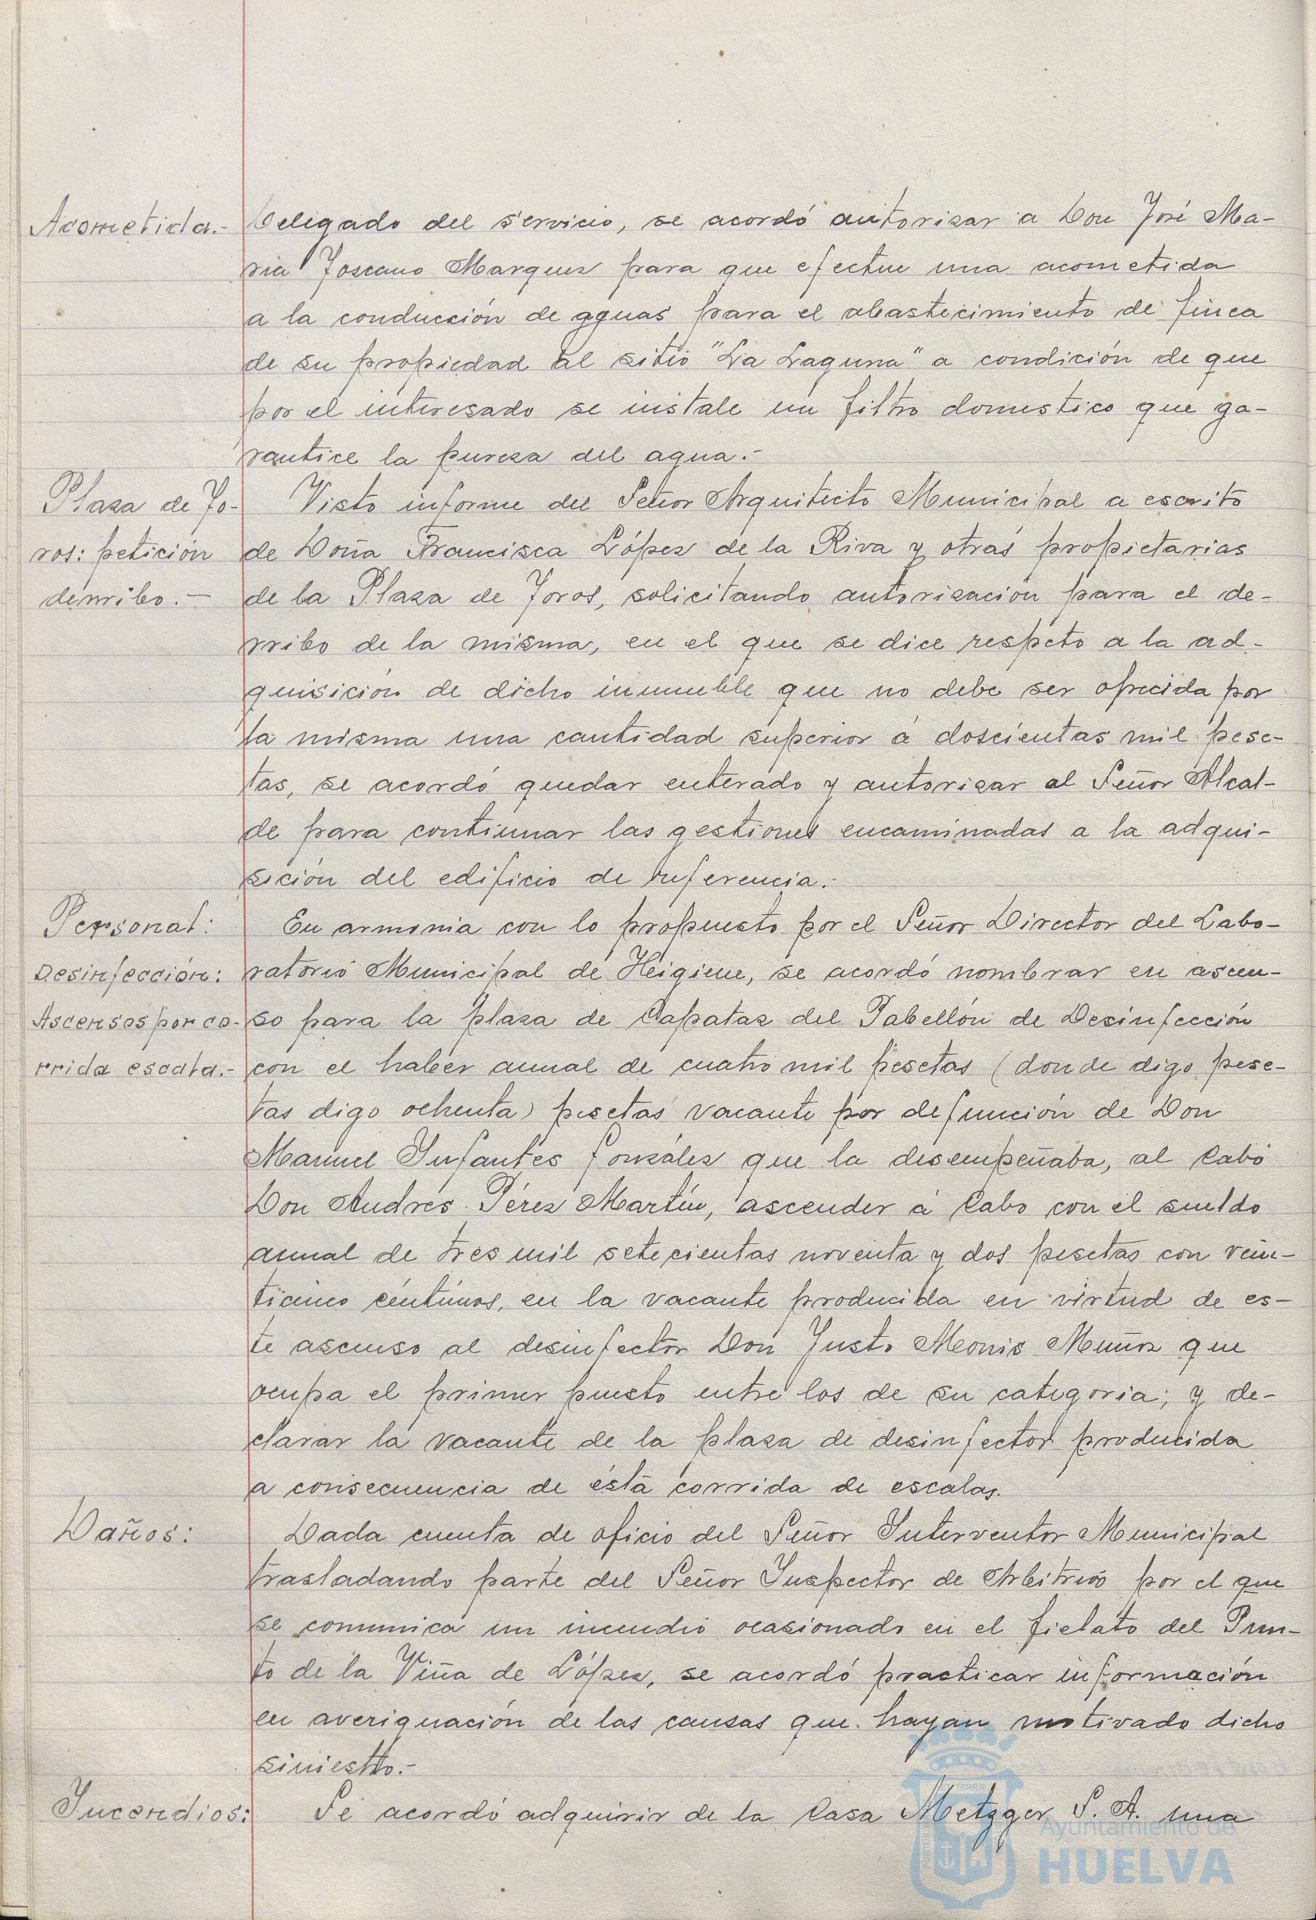 Acometida.-
Delegado del servicio, se acordó autorizar a Don José Ma-
ria Toscano Marquez para que efectue una acometida
a la conducción de aguas para el abastecimiento de finca
de su propiedad al sitio "La Laguna" a condición de que
por el interesado se instale un filtro domestico que ga-
rantice la pureza del agua.-
Plaza de To-
ros: petición
derribo.-
Visto informe del Señor Arquitecto Municipal a escrito
de Doña Francisca López de la Riva y otras propietarias
de la Plaza de Toros, solicitando autorización para el de-
rribo de la misma, en el que se dice respeto a la ad-
quisición de dicho inmueble que no debe ser ofrecida por
la misma una cantidad superior á doscientas mil pese-
tas, se acordó quedar enterado y autorizar al Señor Alcal-
de para continuar las gestiones encaminadas a la adqui-
sición del edificio de referencia.-
Personal:
Desinfección:
Ascensos por co-
rrida escala.-
En armonia con lo propuesto por el Señor Director del Labo-
ratorio Municipal de Heigiene, se acordó nombrar en ascen-
so para la plaza de Capataz del Pabellón de Desinfección
con el haber anual de cuatro mil pesetas (donde digo pese-
tas digo ochenta) pesetas vacante por defunción de Don
Manuel Infantes González que la desempeñaba, al Cabo
Don Andrés Pérez Martín, ascender á Cabo con el sueldo
anual de tres mil setecientas noventa y dos pesetas con vein-
ticinco céntimos, en la vacante producida en virtud de es-
te ascenso al desinfector Don Justo Monis Muñoz que
ocupa el primer puesto entre los de su categoria; y de-
clarar la vacante de la plaza de desinfector producida
a consecuencia de ésta corrida de escalas.
Daños:
Dada cuenta de oficio del Señor Interventor Municipal
trasladando parte del Señor Inspector de Arbitrios por el que
se comunica un incendio ocasionado en el fielato del Pun-
to de la Viña de López, se acordó practicar información
en averiguación de las causas que hayan motivado dicho
siniestro.-
Incendios:
Se acordó adquirir de la Casa Metzger S. A. una
Ayuntamiento de
HUELVA